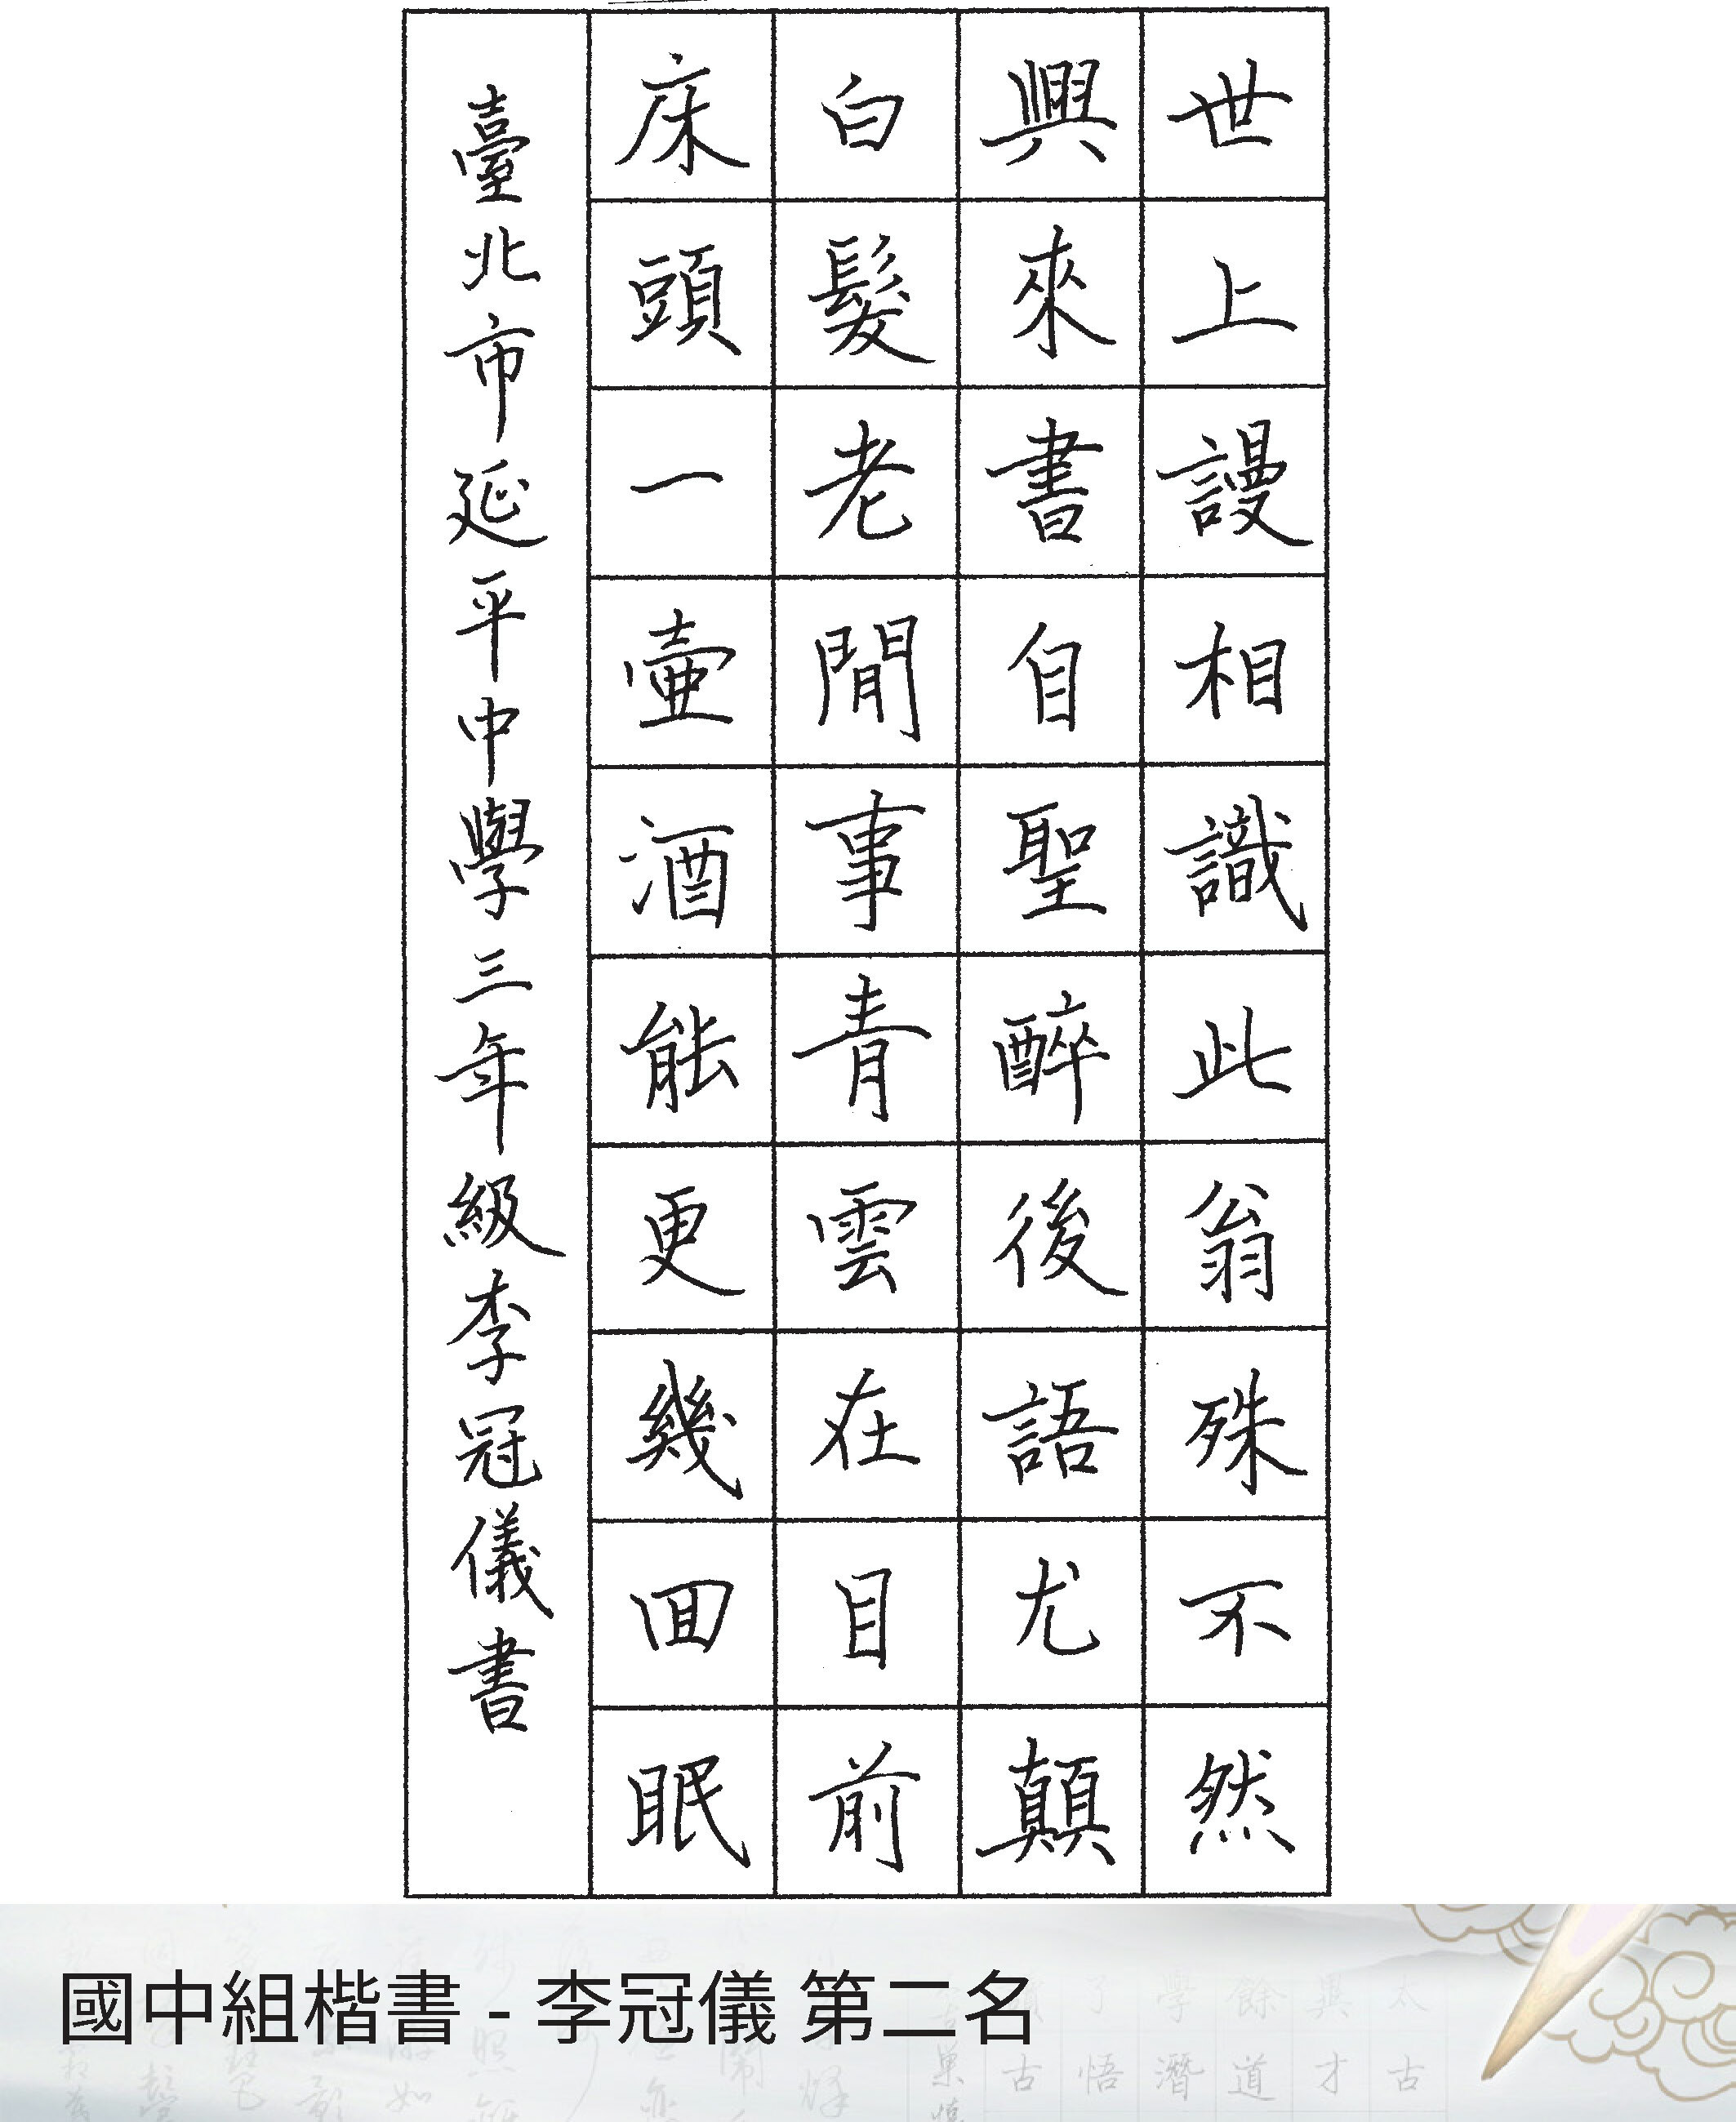 世上謾相識此翁殊不然
興來書自聖醉後語尤顛
白髮老閒事青雲在目前
床頭一壺酒能更幾回眠
臺北市延平中學三年級李冠儀書
國中組楷書 - 李冠儀 第二名